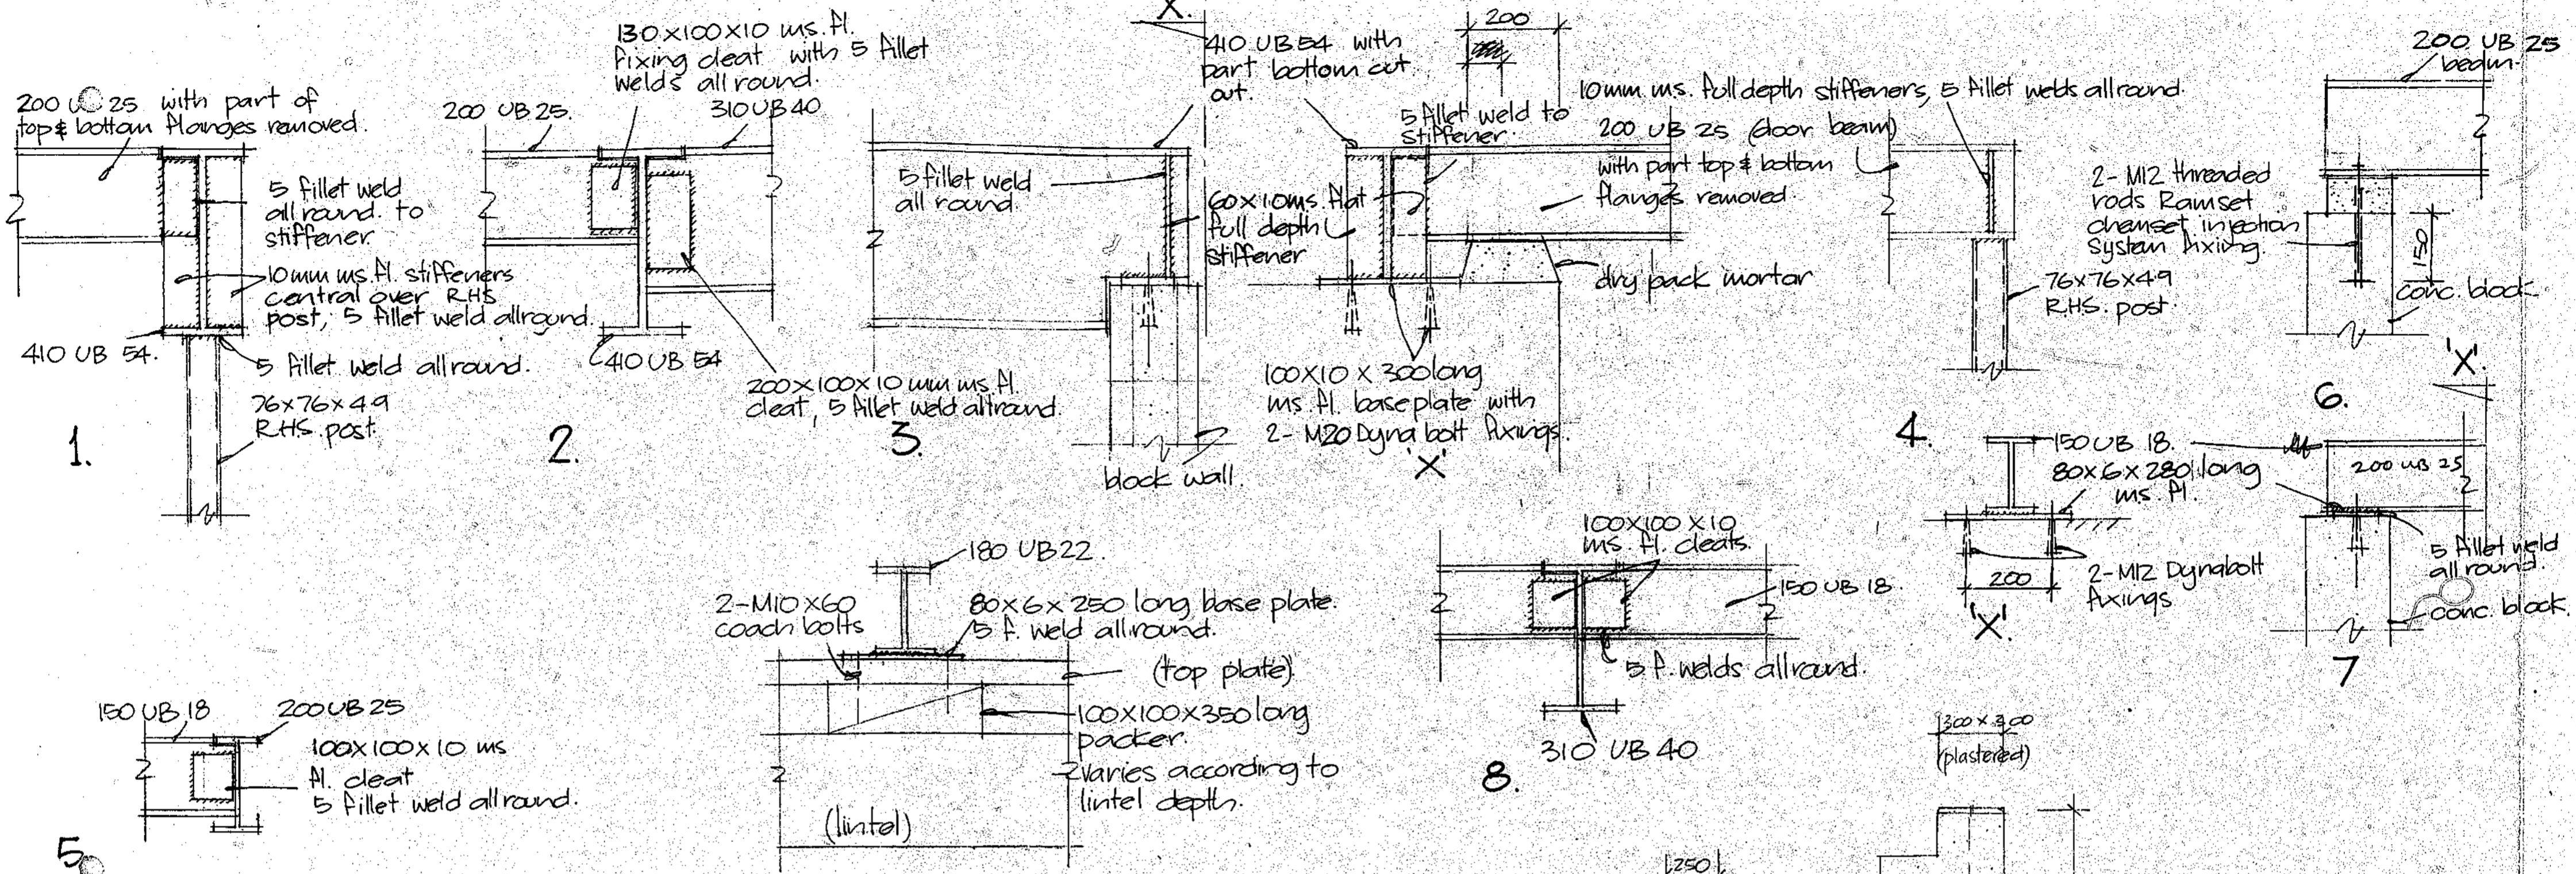 200 UB 25 with part of
top & bottom flanges removed.
5 fillet weld
all round. to
stiffener.
10mm ms.fl. stiffeners
central over RHS
post, 5 fillet weld allround.
410 UB 54.
5 fillet weld allround.
76x76x4.9
RHS. post.
1.
130x100x10 ms. fl.
fixing cleat with 5 fillet
welds all round.
200 UB 25.
310 UB 40
410 UB 54
200x100x10 mm ms fl.
cleat, 5 fillet weld allround.
2.
X.
410 UB 54 with
part bottom cut
out.
5 fillet weld
all round.
60x10ms. flat
full depth
stiffener
block wall.
3.
200
5 fillet weld to
stiffener.
200 UB 25 (door beam)
with part top & bottom
flanges removed.
dry pack mortar
100x10 x 300 long
ms. fl. baseplate with
2- M20 Dyna bolt fixings.
'X'
10mm ms. full depth stiffeners, 5 fillet welds allround.
76x76x4.9
R.H.S. post.
4.
200 UB 25
beam.
2- M12 threaded
rods Ramset
chemset injection
system fixing.
150
conc. block
6.
'X'.
150 UB 18.
80x6x280 long
ms. fl.
200 UB 25
200
2-M12 Dynabolt
fixings
'X'.
5 fillet weld
all round.
conc. block.
7
150 UB 18
200 UB 25
100x100x10 ms
fl. cleat
5 fillet weld all round.
5.
180 UB 22.
2-M10x60
coach bolts
80x6x250 long base plate.
5 f. weld all round.
(top plate).
100x100x350 long
packer.
varies according to
lintel depth.
(lintel)
100x100x10
ms. fl. cleats.
150 UB 18.
5 f. welds allround.
310 UB 40
8.
300 x 300
(plastered)
250